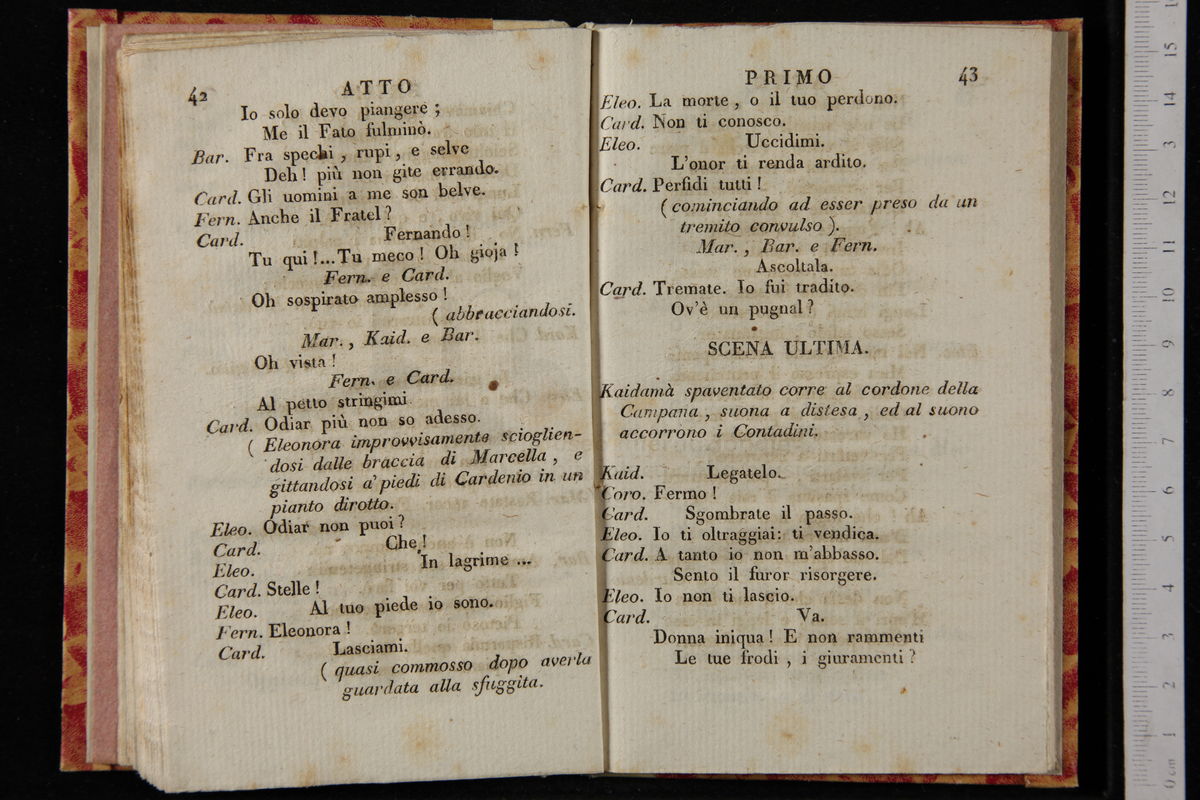 42
ATTO
Io solo devo piangere ;
Me il Fato fulminò.
Bar. Fra spechi , rupi , e selve
Deh ! più non gite errando.
Card. Gli uomini a me son belve.
Fern. Anche il Fratel ?
Card. Fernando !
Tu qui !...Tu meco ! Oh gioja !
Fern. e Card.
Oh sospirato amplesso !
( abbracciandosi.
Mar. , Kaid. e Bar.
Oh vista !
Fern. e Card.
Al petto stringimi
Card. Odiar più non so adesso.
( Eleonora improvvisamente scioglien-
dosi dalle braccia di Marcella , e
gittandosi a' piedi di Cardenio in un
pianto dirotto.
Eleo. Odiar non puoi ?
Card. Che !
Eleo. In lagrime ...
Card. Stelle !
Eleo. Al tuo piede io sono.
Fern. Eleonora !
Card. Lasciami.
( quasi commosso dopo averla
guardata alla sfuggita.
PRIMO
43
Eleo. La morte , o il tuo perdono.
Card. Non ti conosco.
Eleo. Uccidimi.
L'onor ti renda ardito.
Card. Perfidi tutti !
( cominciando ad esser preso da un
tremito convulso ).
Mar. , Bar. e Fern.
Ascoltala.
Card. Tremate. Io fui tradito.
Ov'è un pugnal ?
SCENA ULTIMA.
Kaidamà spaventato corre al cordone della
Campana , suona a distesa , ed al suono
accorrono i Contadini.
Kaid. Legatelo.
Coro. Fermo !
Card. Sgombrate il passo.
Eleo. Io ti oltraggiai: ti vendica.
Card. A tanto io non m'abbasso.
Sento il furor risorgere.
Eleo. Io non ti lascio.
Card. Va.
Donna iniqua ! E non rammenti
Le tue frodi , i giuramenti ?
0 cm 1 2 3 4 5 6 7 8 9 10 11 12 13 14 15